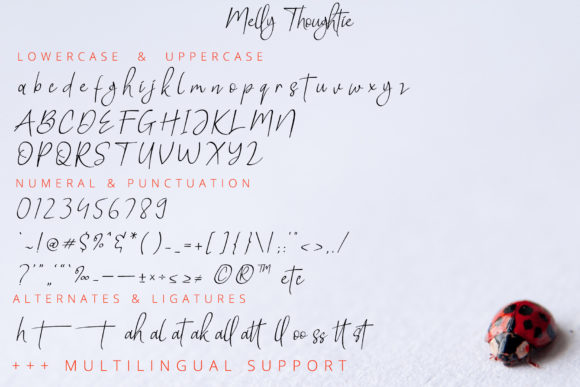 Melly Thoughtie
LOWERCASE & UPPERCASE
a b c d e f g h i j k l m n o p q r s t u v w x y z
ABCDEFGHIJKLMN
OPQRSTUVWXYZ
NUMERAL & PUNCTUATION
0123456789
`~!@#$%^&*()-_=+[]{}\|;:'"<>,./
?'"„‘“`‰-–—±×÷≤≥≠©®™ etc
ALTERNATES & LIGATURES
h t t ah al at ak all att ll oo ss tt st
+++ MULTILINGUAL SUPPORT